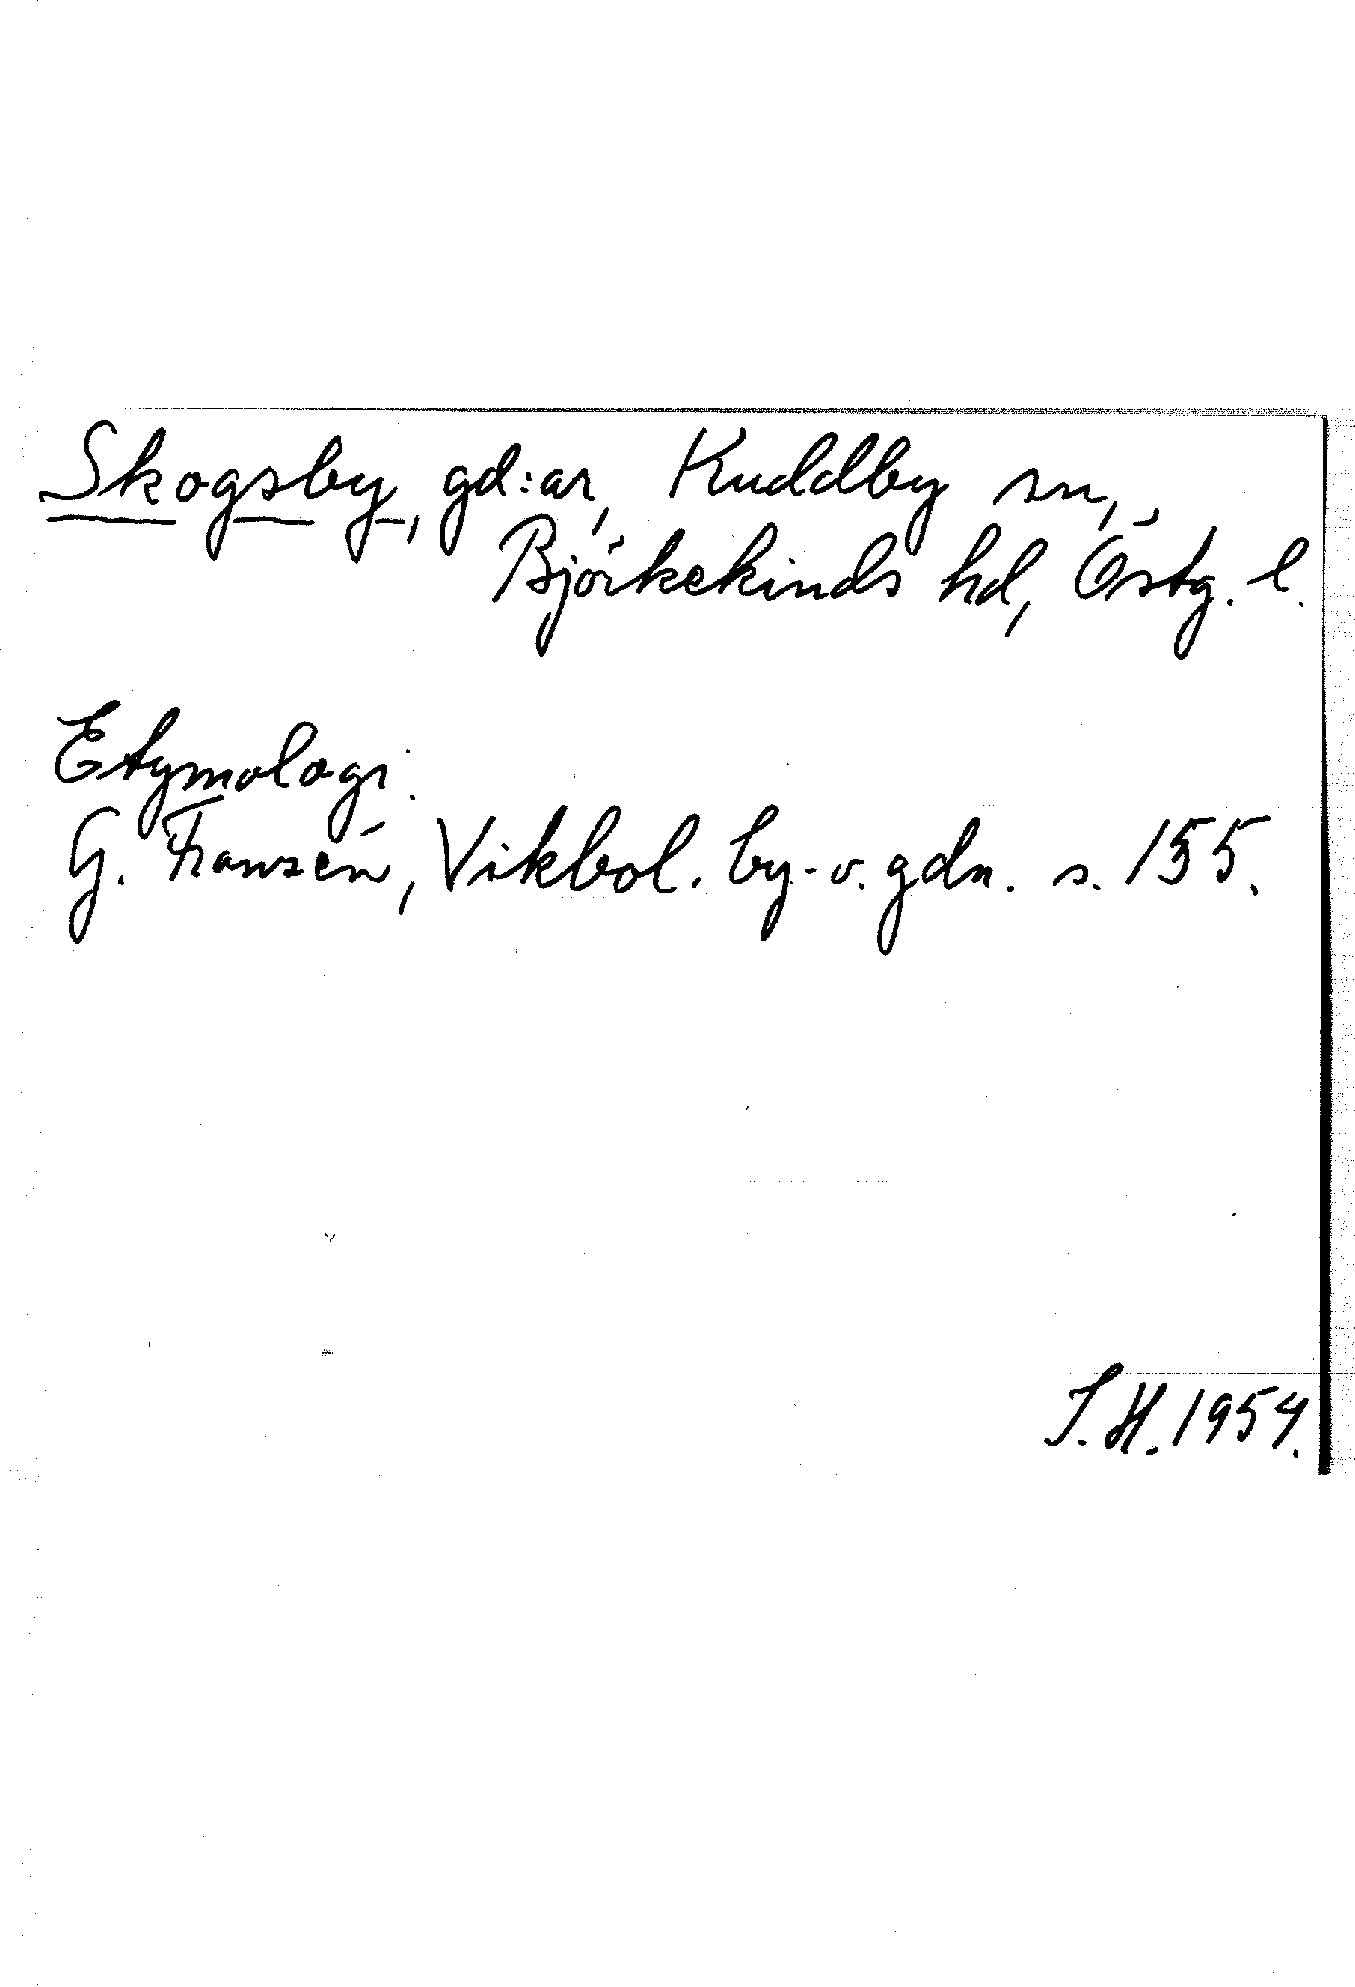 Skogsby, gd:ar, Kuddby sn,
Björkekinds hd, Östg. l.
Etymologi:
G. Franzén, Vikbol. by- o. gdn. s. 155.
S.H. 1954.